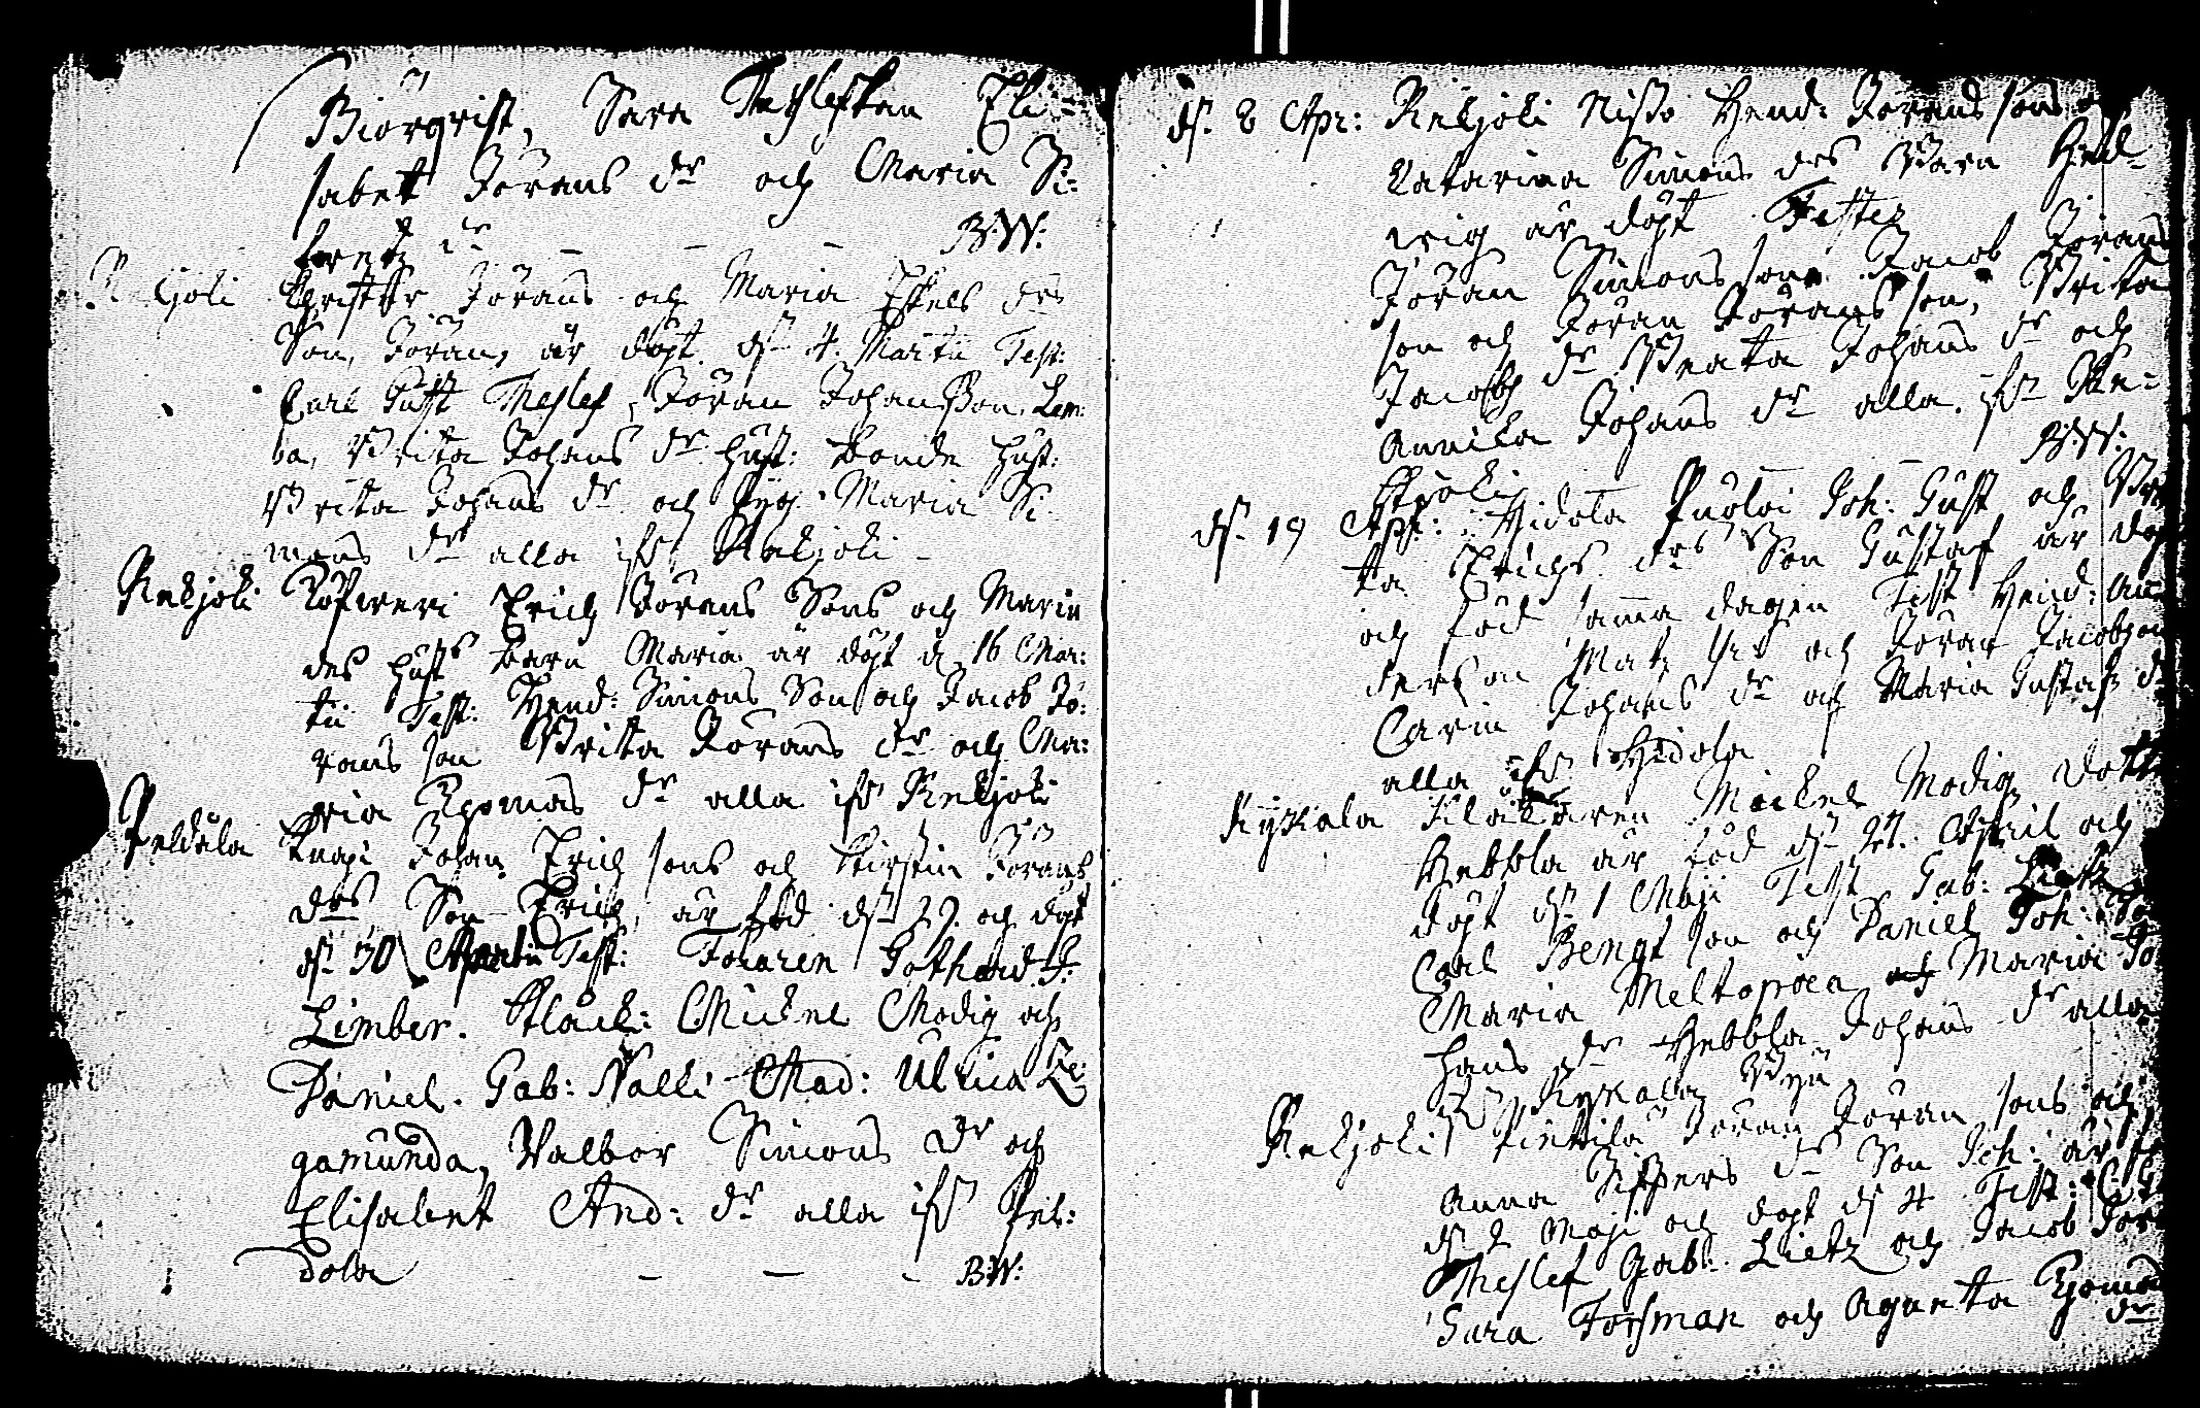 Biörqvist, Sara Theslefken Eli=
sabet Jörans dr och Maria Si=
frets dr B:W:
Rekjoli Christer Jörans och Maria Eskels drs
Son, Jöran, är döpt d. 4. Martii Test:
Carl Gust Theslef, Jöran Johansson Lem:
ba, Brita Johans dr hust: bonde hust:
Brita Johans dr och Pig. Maria Si
mons dr alla ifr. Rekjoki
Rekjoki Erich Jörans Sons och Maria
des hust barn Maria är döpt d. 16 Mar:
tii Test: Hend: Simons Son och Jacob Jö:
rans son Brita Jörans dr och Ma:
ria Thomas dr alla ifr Rekjoki
Peldola Knapi Johan Erich sons och Kirstin Jörans
drs Son Erich, är född d. 29. och döpt
d. 30 Test: Gothard J.
Limber. Mickel Modig och
Daniel. Gab: Nalli Mad: Ulrica Le
gamunda, Valbor Simons dr och
Elisabet And: dr alla ifr Pel:
dola B:W:
d. 8 Apr: Rekjoki Nisso Hend: Jörans sons
Katarina Simons drs Barn Hed=
wig är döpt Testes
Jöran Simons son Jacob Jörans
son och Jöran Jörans son, Brita
Jacobs dr Beata Johans dr och
Annika Johans dr alla ifr Re=
kjoki B:W:
d. 19 Apr: Hidola Puoloi Joh: Gust och Bri
ta Erichs drs Son Gustaf är döp
och född samma dagen Test Hend: An
derson Mats och Jöran Jacobson
Carin Johans dr och Maria Gustafs d
alla ifr Hidola
Kyrkola Klåkaren Mickel Modig dott
Hebbla är född d. 27. April och
döpt d. 1 Maji Test Gab: Lietz
Carl Bengt son och Daniel Joh:
Maria Meltopoea Maria Jo
hans dr Hebbla Johans dr alla
Kyrkola Byn
Rekjoki Pinttilä Jöran Jöran sons och
Anna Sippers dr Son Joh: är fö
d. 2 Maji och döpt d. 4 Test: C: G
Theslef Gab: Lietz och Jacob Jör
Sara Forsman och Agneta Thoma
dr